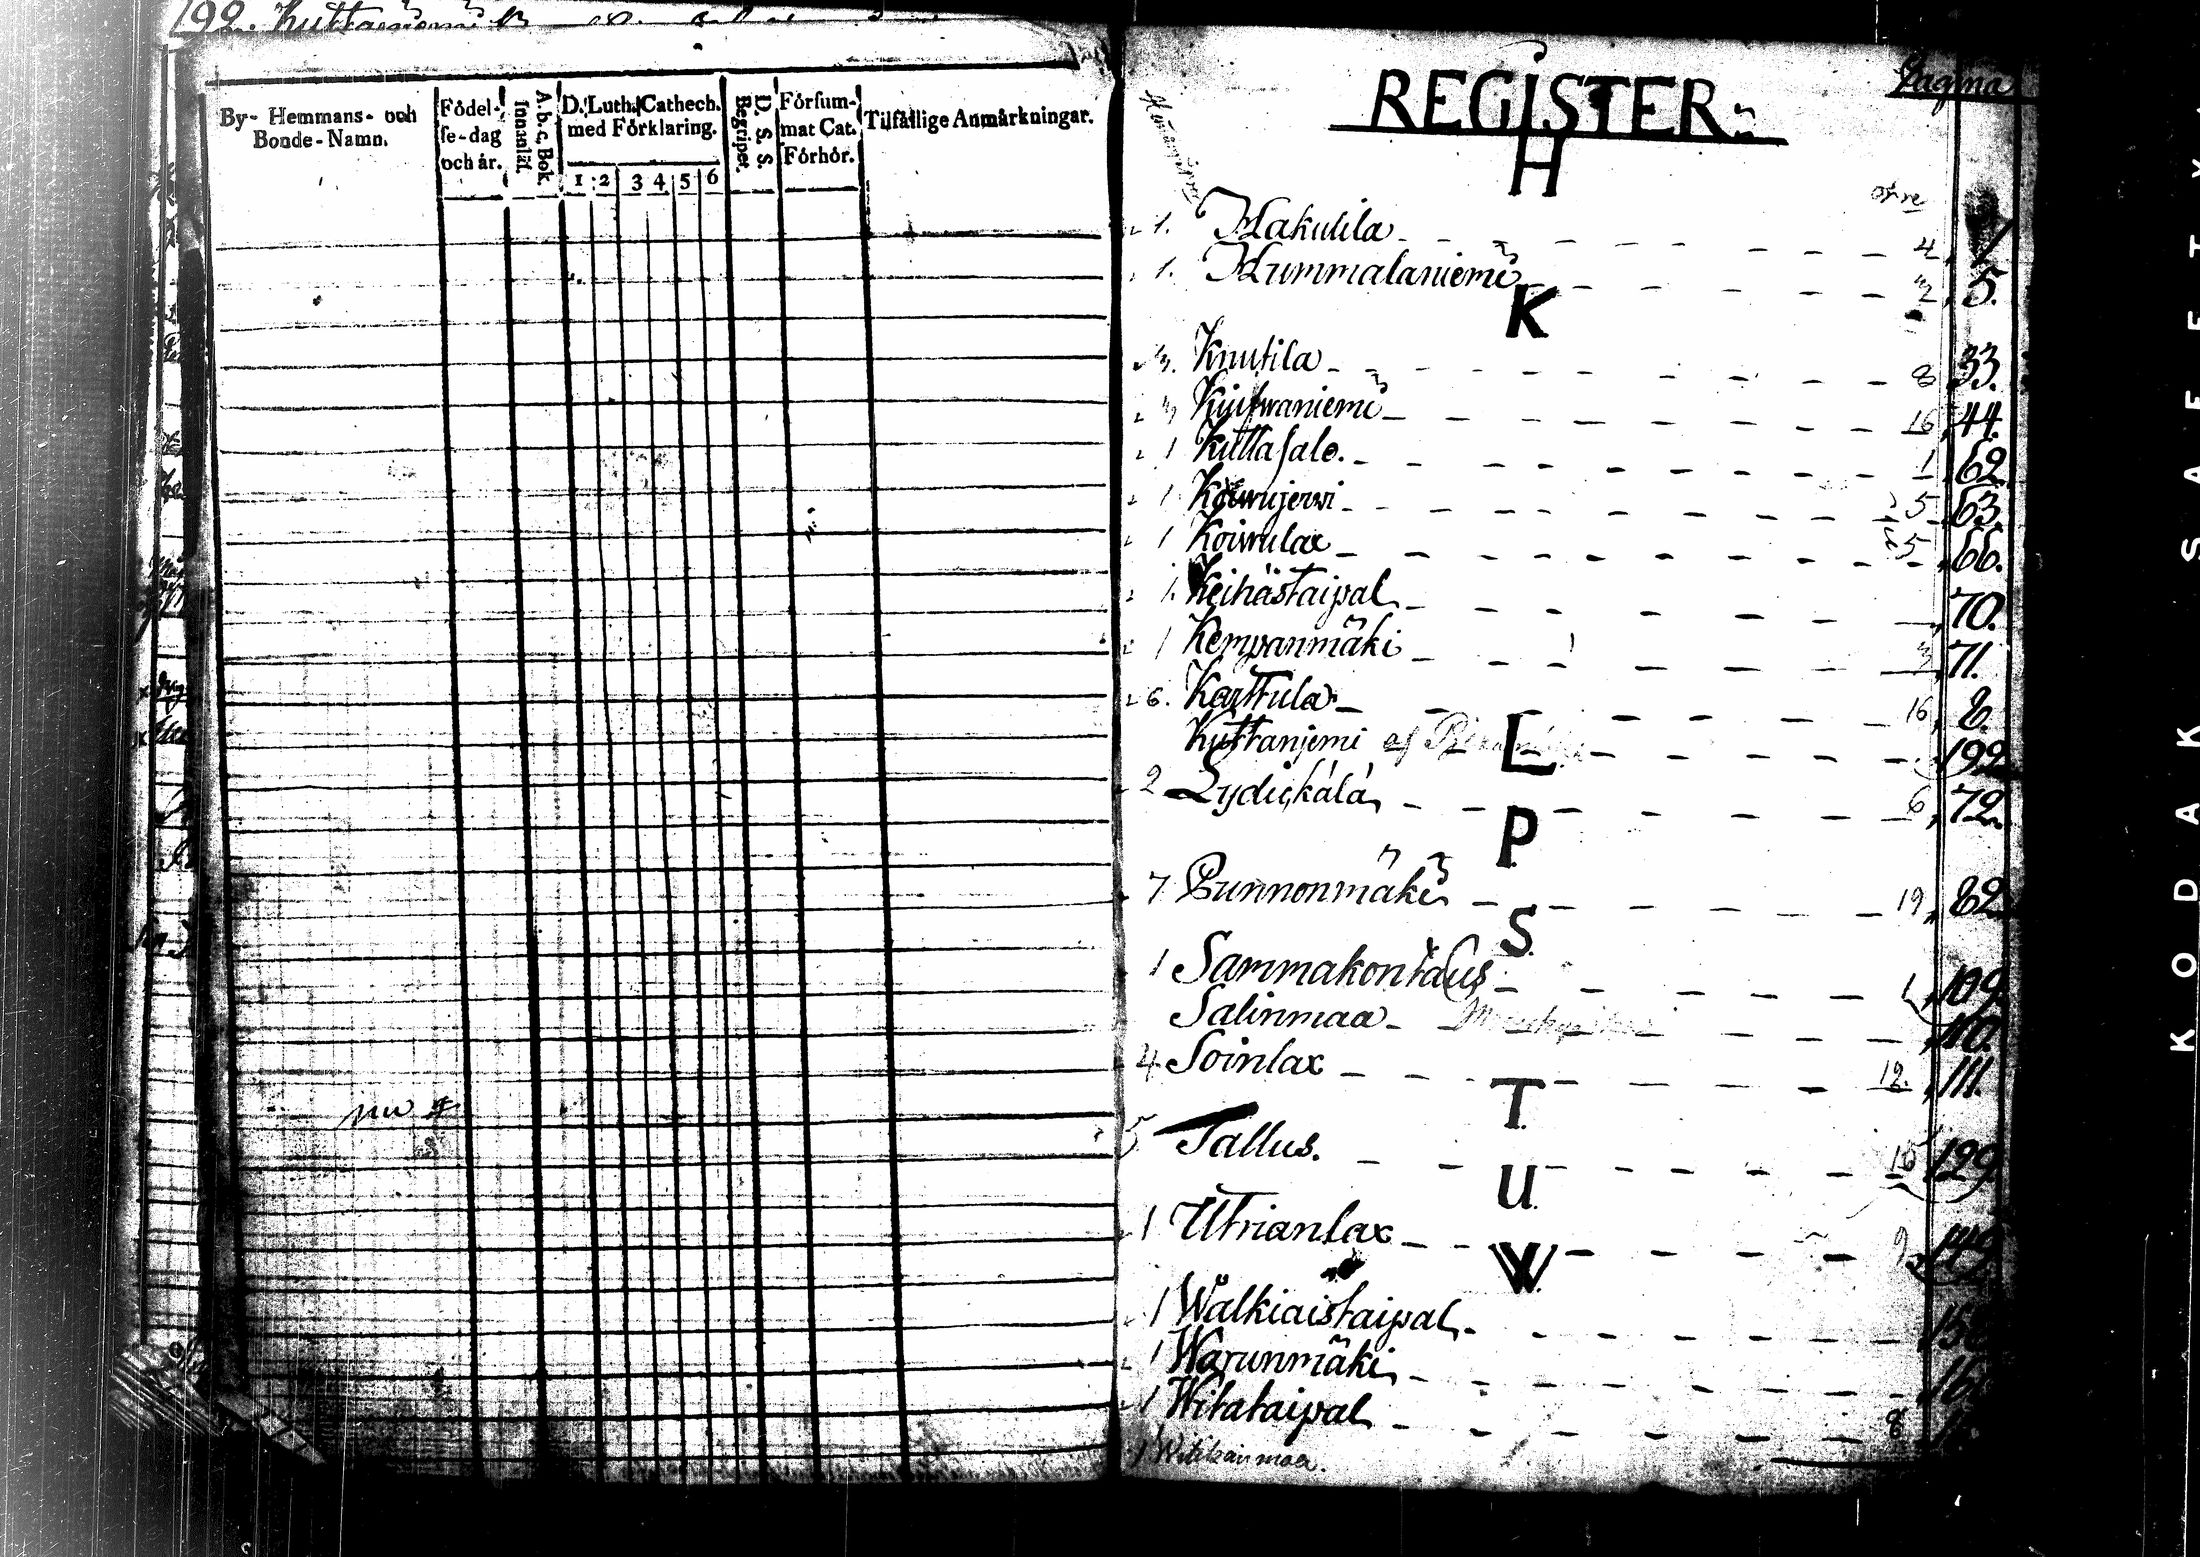 192. Kuttaniemi
By- Hemmans- och Bonde-Namn.
Födel-se-dag och år.
A.b.c. Bok. Innanläs.
D. Luth. Cathech. med Förklaring.
1 2 3 4 5 6
D. S. S. Begriper.
Försum-mat Cat. Förhör.
Tilfällige Anmärkningar.
REGISTER:
Pagina
H
1. Hakulila 4 1
1. Hummalaniemi 2 5.
K
3. Knutila 8 33.
3 Kuitwaniemi 16 44.
1 Kuttasalo. 1 62
1 Koiwujerwi 5 63.
1 Koiwulax 5 66.
1. Keihästaipal 70.
1 Kempanmäki 3 71.
6. Karttula 16 8.
Kuttanjemi af 192
L
2 Lydickälä 6 72.
P
7 Punnonmäki 19 82
S.
1 Sammakontaus 1 109
Salinmaa 110.
4 Soinlax 12. 111.
T.
5 Tallus. 15 129.
U.
1 Utrianlax 9 149
W.
1 Walkiaistaipal
1 Warunmäki
1 Witataipal 8
1 Witikainmaa.
KODAK SAFETY